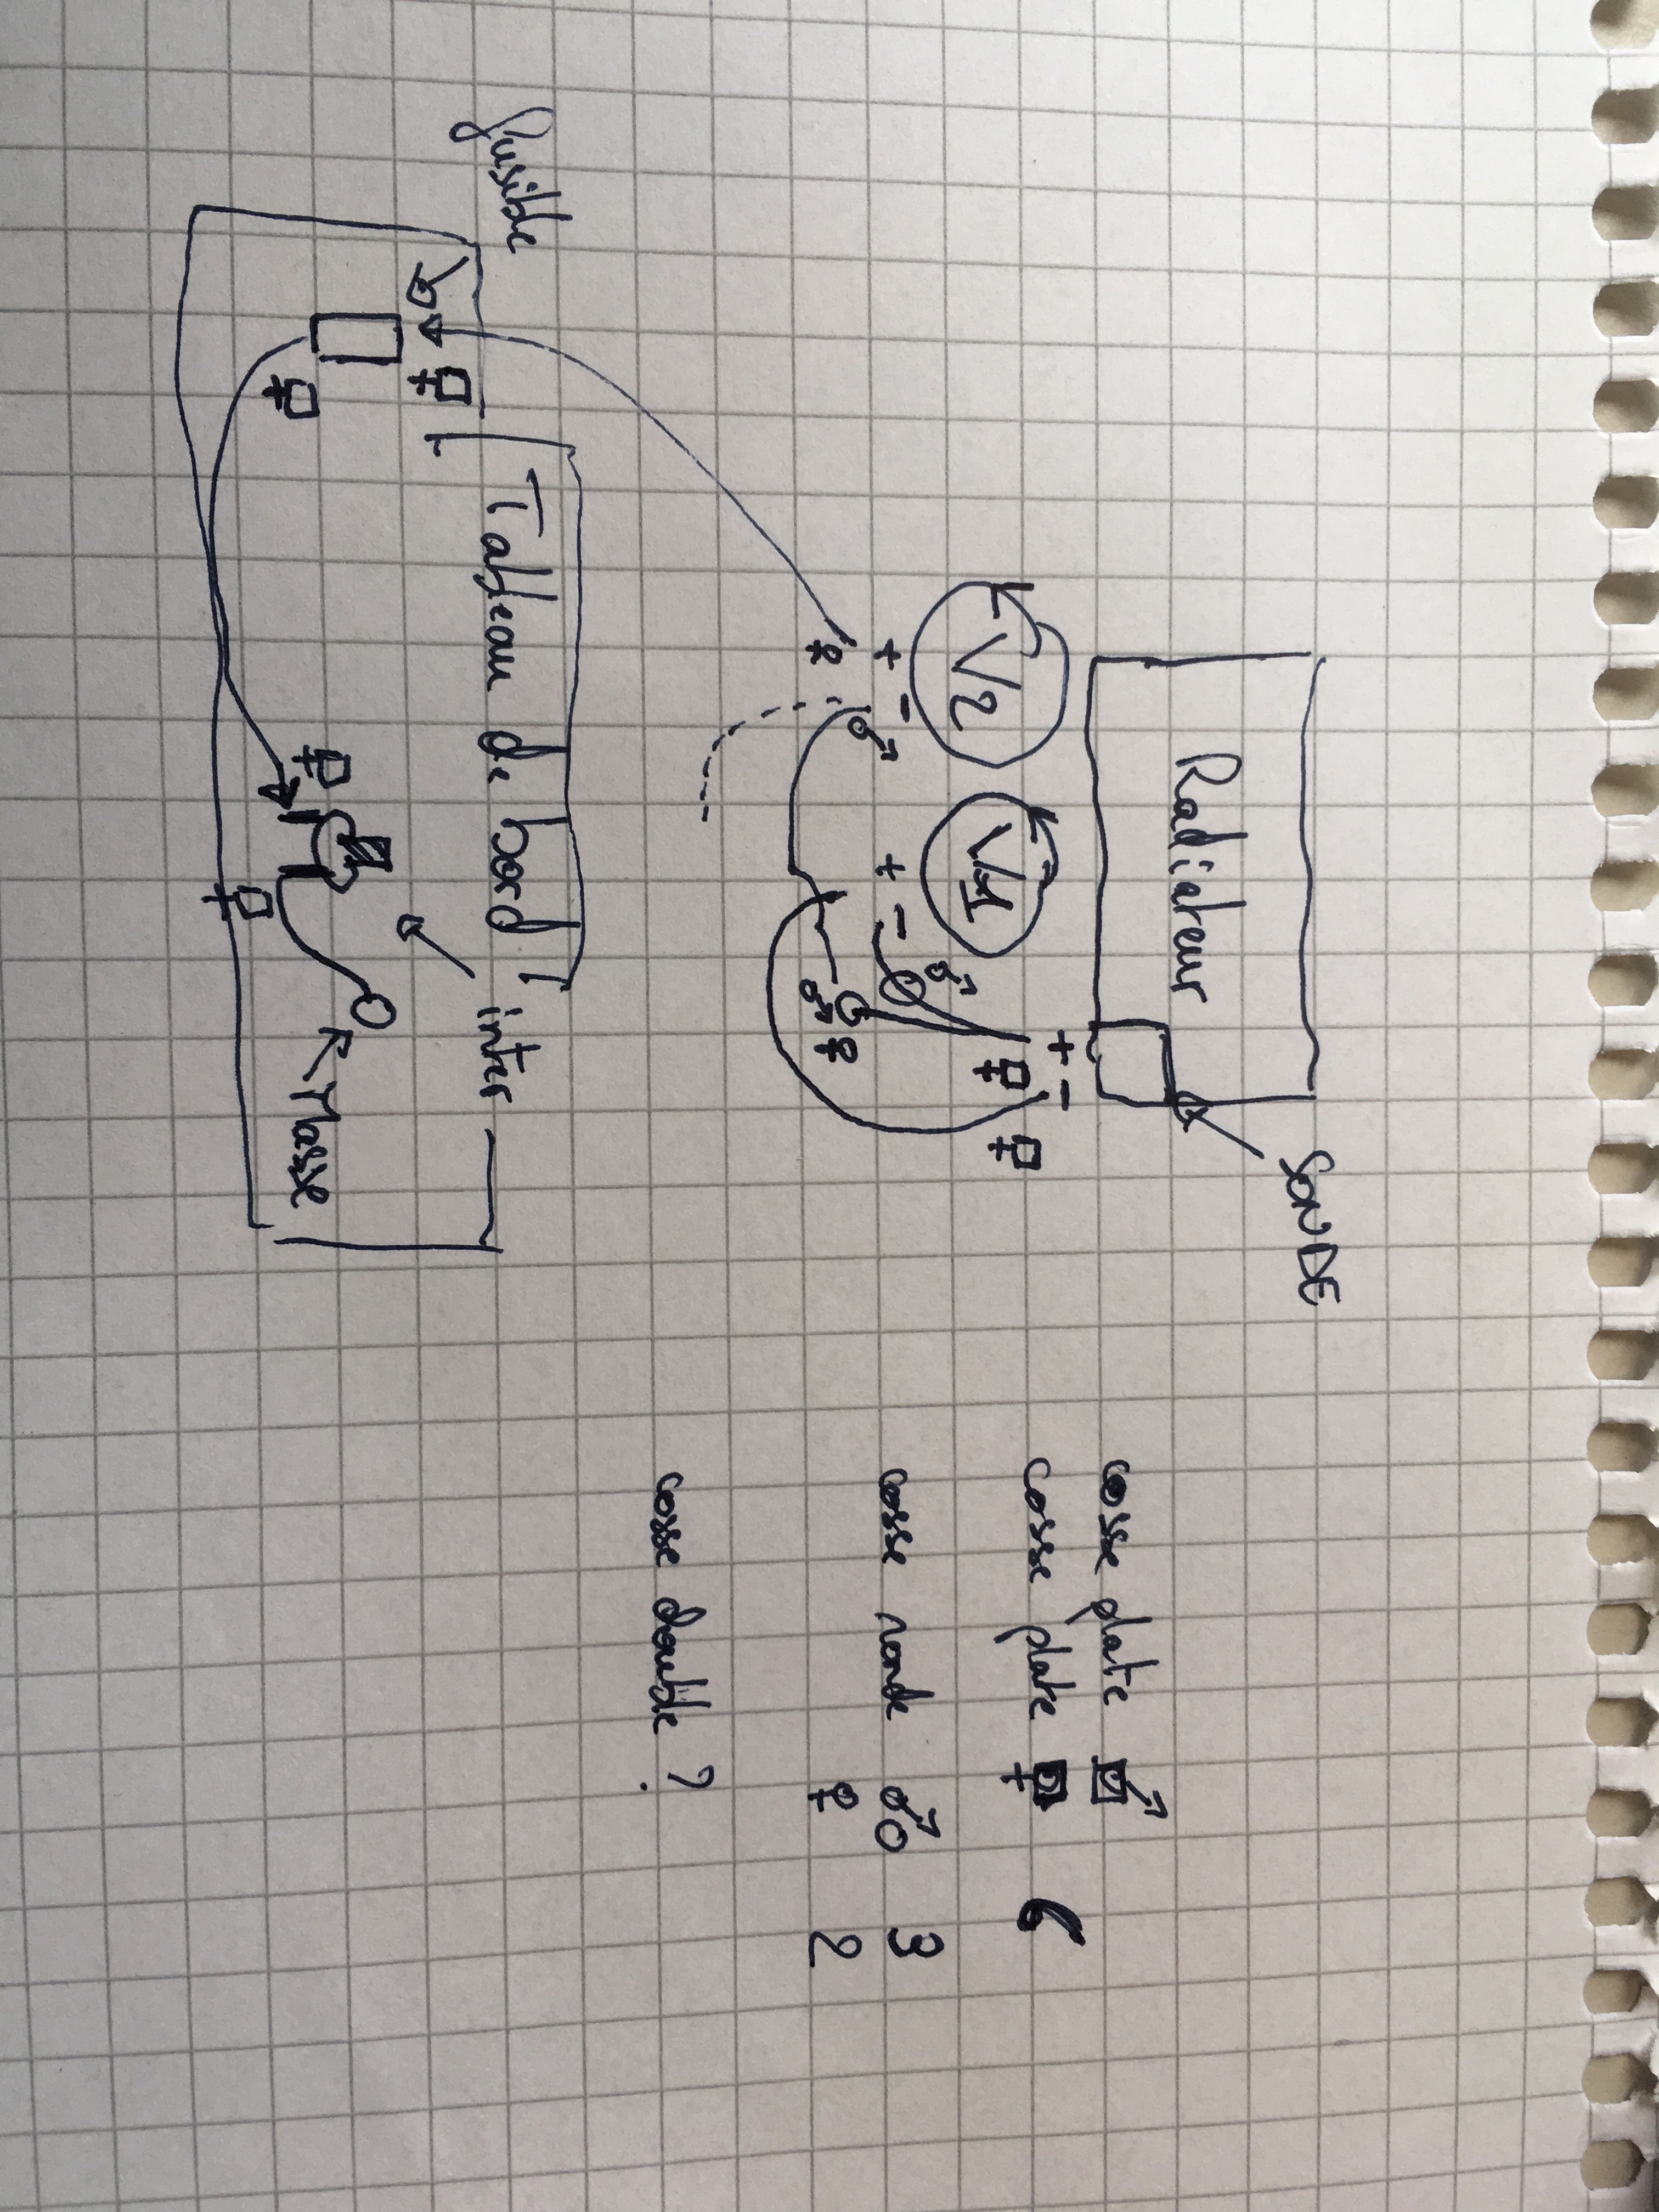 SONDE
Radiateur
V2
V1
+ -
+ -
+ -
♀
♂
♂
♂ ♀
fusible
Tableau de bord
inter
Masse
cosse plate
cosse plate 6
cosse ronde ♂ 3
♀ 2
cosse double ?